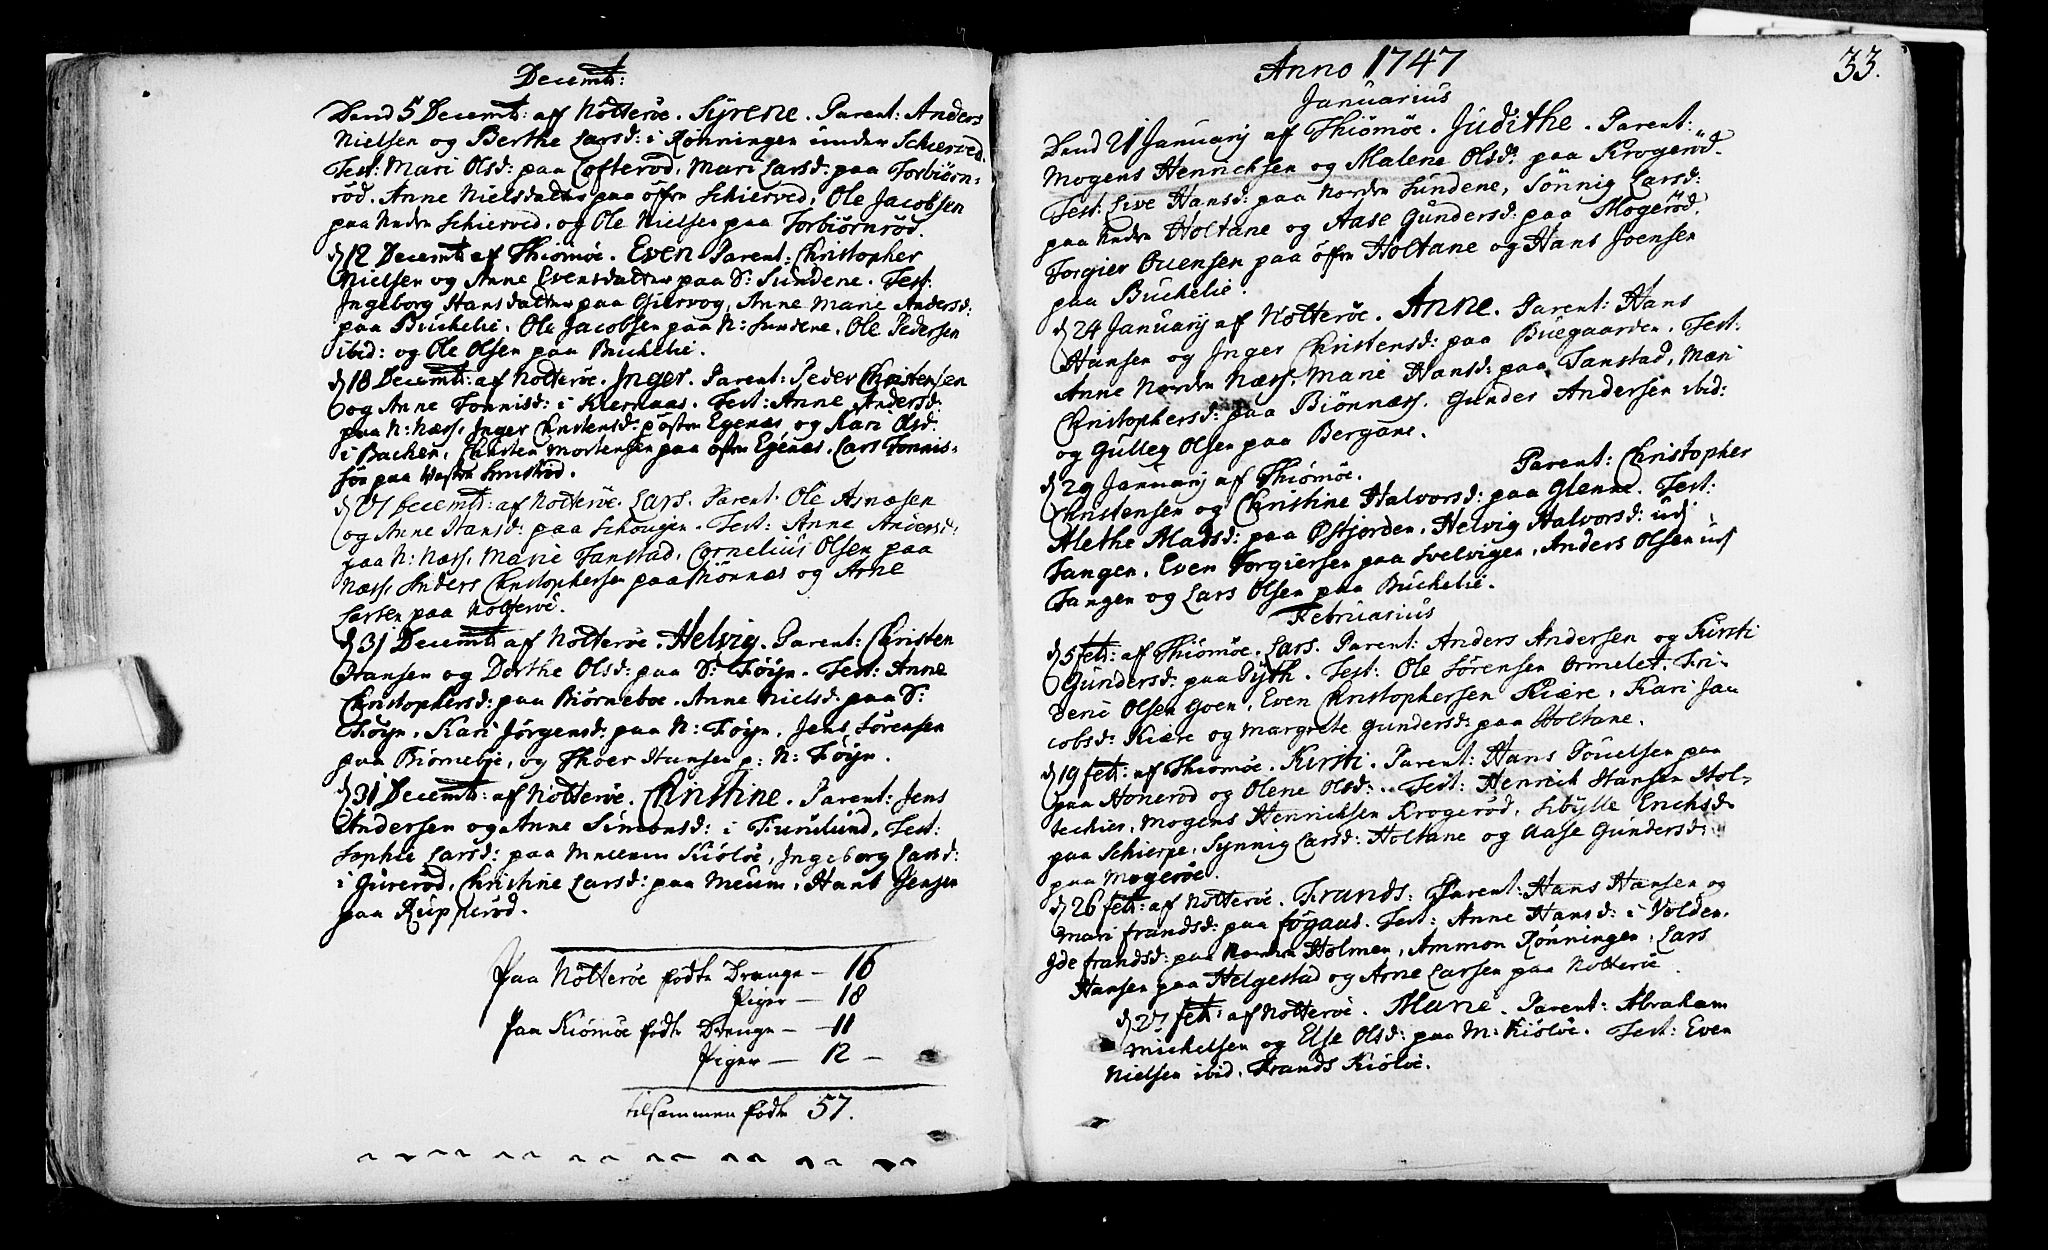 Decembr:
Dend 5 Decembr: af Nötteröe. Syrene. Parent: Anders
Nielsen og Berthe Larsd: i Rönningen under Schierved.
Test: Mari Olsd: paa Lofteröd, Mari Larsd: paa Torbiörn-
röd. Anne Nielsdatter paa öfre Schierved, Ole Jacobsen
paa Nedre Schierved, og Ole Nielsen paa Torbiörnröd.
d 12 Decembr: af Thiömöe. Even. Parent: Christopher
Nielsen og Anne Evensdatter paa S: Sundene. Test:
Ingeborg Hansdatter paa Giervog, Anne Marie Andersd:
paa Buchelie. Ole Jacobsen paa N: Sundene. Ole Pedersen
ibid: og Ole Olsen paa Buchelie.
d 18 Decembr: af Nötteröe. Inger. Parent: Peder Christensen
og Anne Tonnisd: i Kiernaas. Test: Anne Andersd:
paa N: Næss, Inger Christensd: p östre Egenæs, og Kari Olsd:
i Backen, Christen Mortensen paa östre Egenæs. Lars Tonnis-
sön paa Westre
d 27 Decembr: af Nötteröe. Lars. Parent: Ole Arnesen
og Anne Hansd: paa Schougen. Test: Anne Andersd:
paa N: Næss, Marie Tanstad, Cornelius Olsen paa
Næss, Anders Christophersen paa Biönnes og Arne
Larsen paa Nötteröe.
d 31 Decembr: af Nötteröe. Helvig. Parent: Christen
Hansen og Dorthe Olsd: paa S: Föÿn. Test: Anne
Christophersd: paa Biörneboe. Anne Nielsd: paa S:
Föÿn, Kari Jörgensd: paa N: Föÿn, Jens Sörensen
paa Biörneboe, og Thoer Hansen p: N: Föÿn.
d 31 Decembr: af Nötteröe. Christine. Parent: Jens
Andersen og Anne Simonsd: i Furulund, Test:
Sophie Larsd: paa Mellem Kiölöe, Ingeborg Larsd:
i Gureröd, Christine Larsd: paa Meum, Hans Jensen
paa Rupperöd.
Paa Nötteröe födte Drenge — 16
Piger — 18
Paa Kiömöe födte Drenge — 11
Piger — 12 —
tilsammen födte 57.
33.
Anno 1747
Januarius
Dend 21 Januarij af Thiömöe. Judithe. Parent:
Mogens Henrichsen og Malene Olsd: paa Krogeröd.
Test: Live Hansd: paa Nordre Sundene, Sönnig Larsd:
paa Nedre Holtane og Aase Gundersd: paa Mogeröd.
Torgier Ouensen paa öfre Holtane og Hans Joensen
paa Buchelie.
d 24 Januarij af Nötteröe. Anne. Parent: Hans
Hansen og Inger Christensd: paa Buegaarden. Test:
Anne Nordre Næss, Marie Hansd: paa Tanstad, Mari
Christophersd: paa Biönnæss. Gunder Andersen ibid:
og Gulley Olsen paa Bergane.
d 29 Januarij af Thiömöe. Parent: Christopher
Christensen og Christine Halvorsd: paa Glenne. Test:
Alethe Madsd: paa Östjorden, Helvig Halvorsd: udj
Tangen, Even Torgiersen paa Svelvigen, Anders Olsen udj
Tangen og Lars Olsen paa Buchelie.
Februarius
d 5 febr: af Thiömöe. Lars. Parent: Anders Andersen og Kirsti
Gundersd: paa Pÿth. Test: Ole Sörensen Ormelet. Fri-
deric Olsen Goen, Even Christophersen Kiære, Kari Jaa
cobsd: Kiære og Margrete Gundersd: paa Holtane.
d 19 febr: af Thiömöe. Kirsti. Parent: Hans Pouelsen paa
paa Honeröd og Olene Olsd: . Test: Henrich Hansen Hol-
techier, Mogens Henrichsen Krogeröd, Sibÿlle Erichsd:
paa Schierpe, Synnig Larsd: Holtane og Aase Gundersd:
paa Mogeröe.
d 26 febr: af Nötteröe. Frands: Parent: Hans Hansen og
Mari frandsd: paa fögaas. Test: Anne Hansd: i Volden.
Ide frandsd: paa Nordre Holmen, Ammon Rönningen, Lars
Hansen paa Helgestad og Arne Larsen paa Nötteröe.
d 27 febr: af Nötteröe. Marie. Parent: Abraham
Michelsen og Else Olsd: paa M: Kiölöe. Test: Even
Nielsen ibid. Frands Kiölöe.